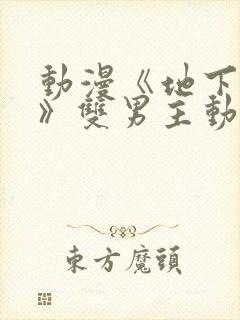 動漫《地下
》雙男主動
東方魔頭